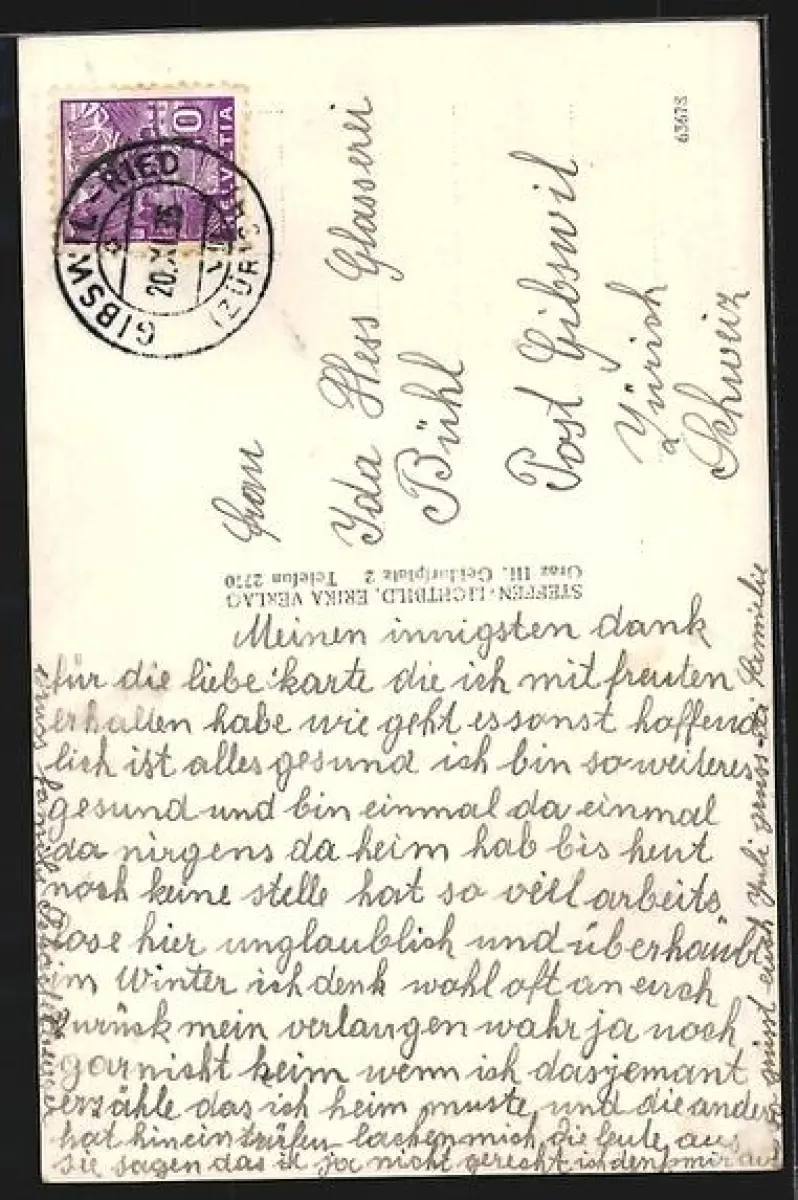 10
HELVETIA
GIBSWIL-RIED
(ZÜRICH)
63678
Frau
Ida Hess Glasserei
Bühl
Post Gibswil
Zürich
Schweiz
STEFFEN-LICHTBILD, ERIKA VERLAG
Graz III, Geidorfplatz 2 Telefon 2770
Meinen innigsten dank
für die liebe karte die ich mit freuten
erhalten habe wie geht es sonst hoffend
lich ist alles gesund ich bin so weiteres
gesund und bin einmal da einmal
da nirgens da heim hab bis heut
noch keine stelle hat so viel arbeits
lose hier unglaublich und überhaubt
im Winter ich denk wohl oft an euch
zurück mein verlangen wahr ja noch
gar nicht heim wenn ich das jemant
erzähle das ich heim muste und die ander
hat hinein lachen mich die leute aus
sie sagen das ist ja nicht gerecht ich denk mir
grüsst euch Juli gruss